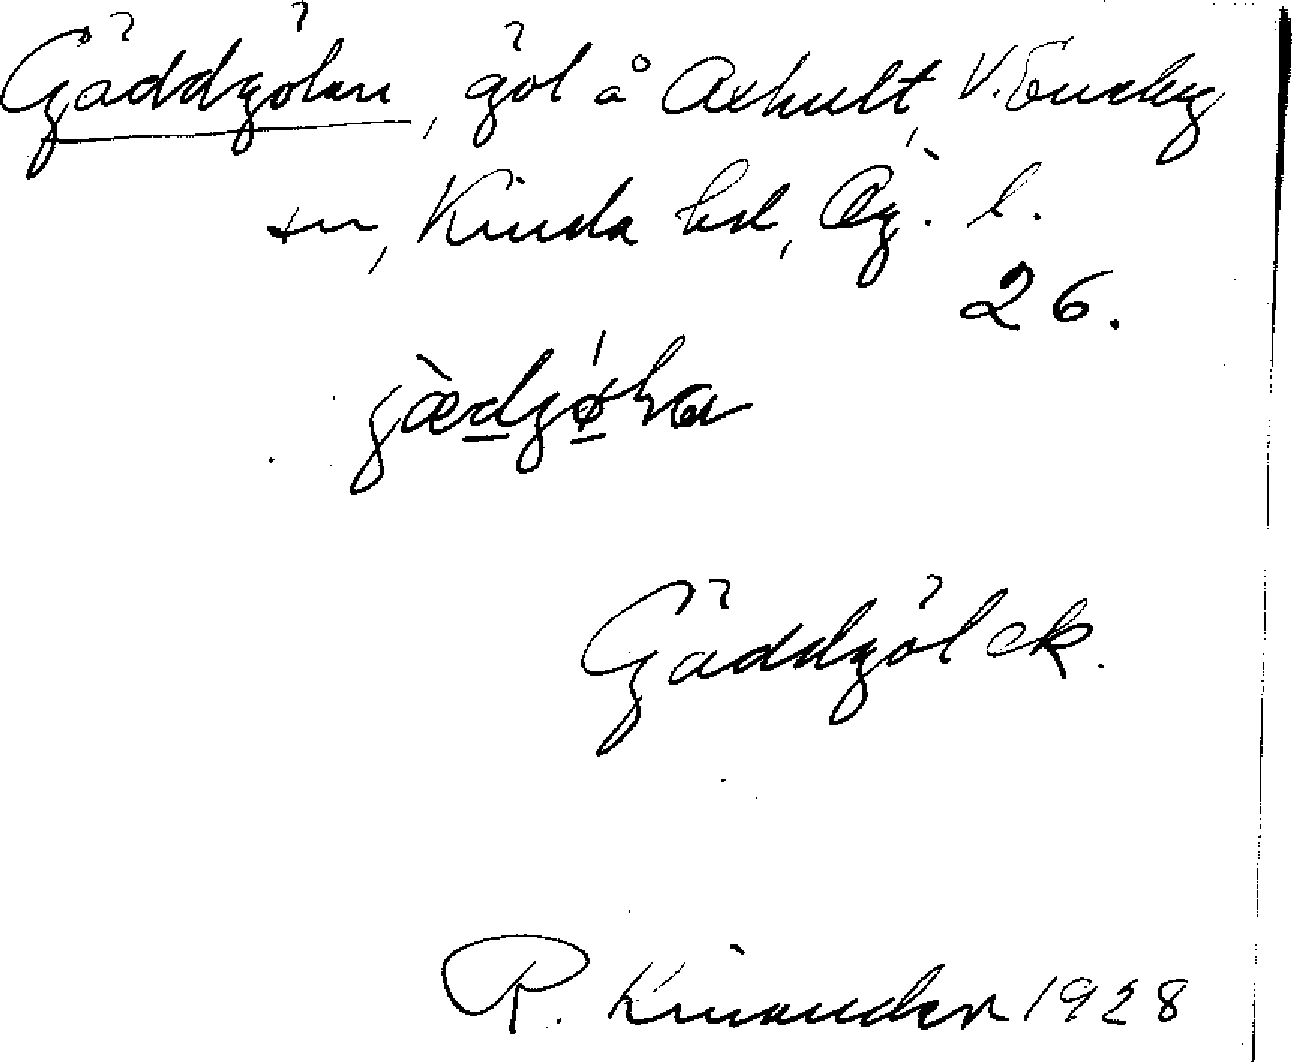 Gäddgölen, göl å Axhult, V. Eneby
sn, Kinda hd, Ög. l.
26.
Gäddgöl ek.
R. Kinander 1928